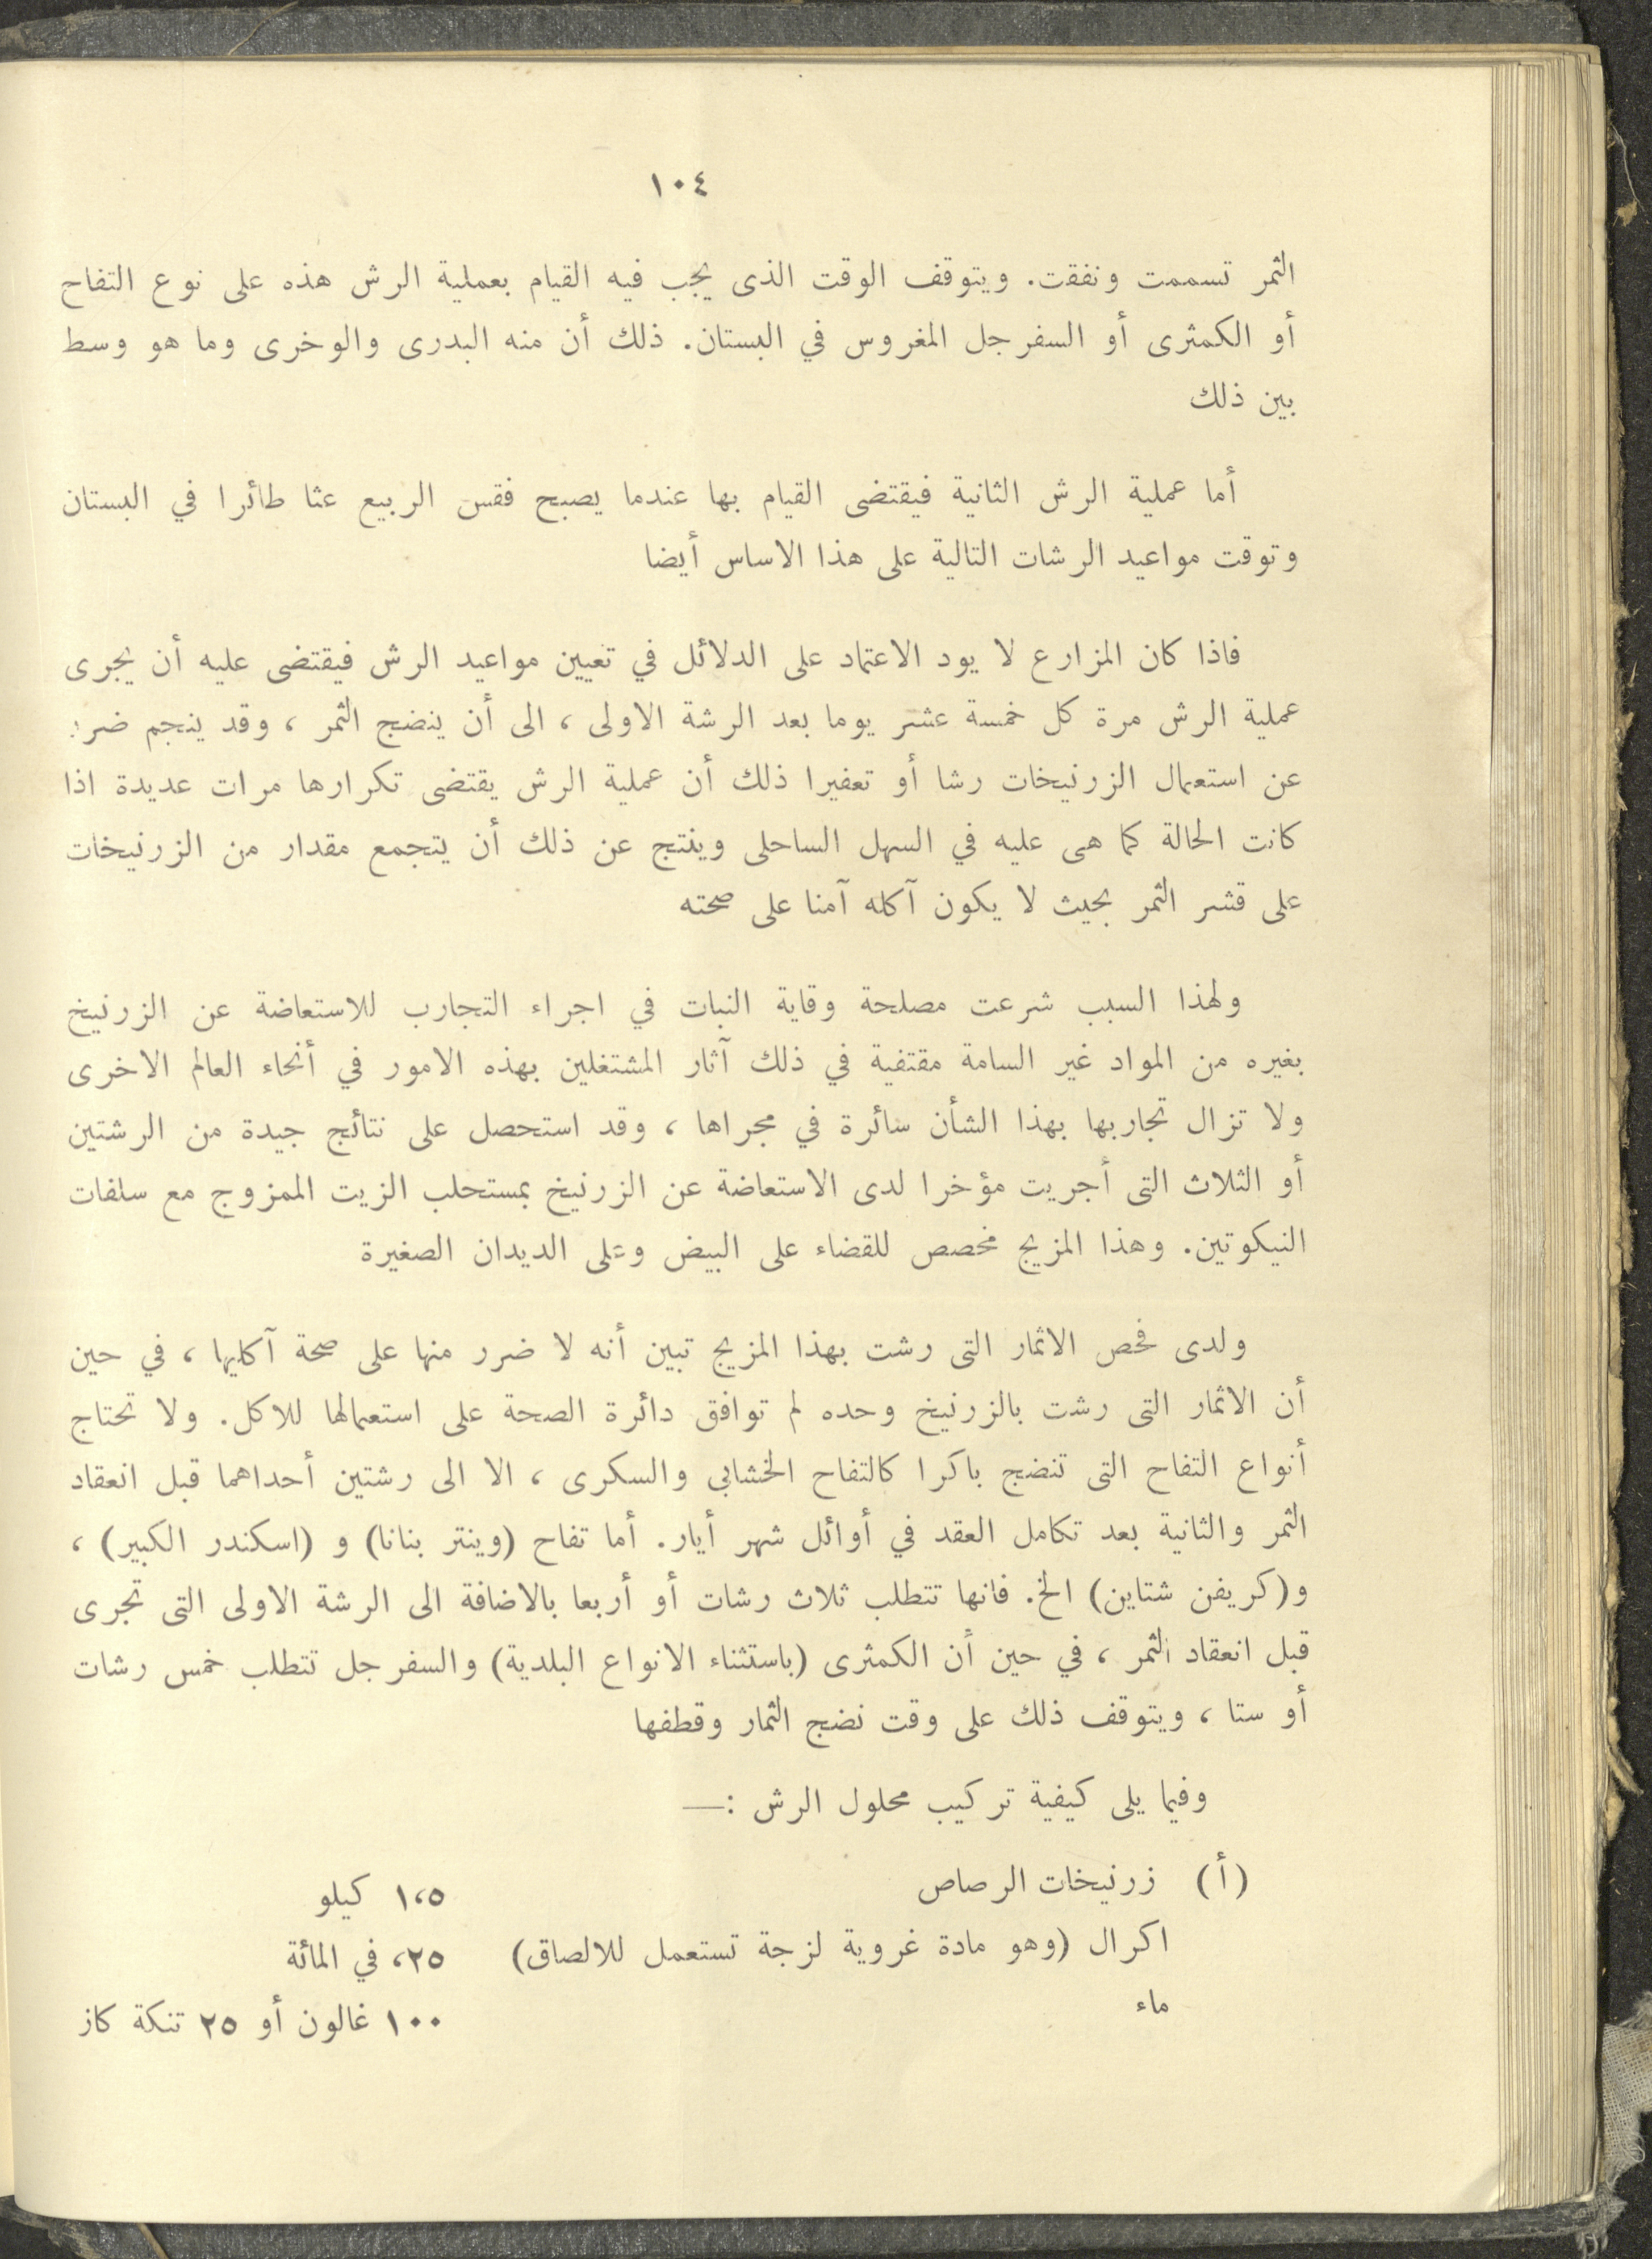 ١٠٤
الثمر تسممت ونفقت. ويتوقف الوقت الذى يجب فيه القيام بعملية الرش هذه على نوع التفاح
أو الكمثرى أو السفرجل المغروس في البستان. ذلك أن منه البدرى والوخرى وما هو وسط
بين ذلك
أما عملية الرش الثانية فيقتضى القيام بها عندما يصبح فقس الربيع عثا طائرا في البستان
وتوقت مواعيد الرشات التالية على هذا الاساس أيضا
فاذا كان المزارع لا يود الاعتماد على الدلائل في تعيين مواعيد الرش فيقتضى عليه أن يجرى
عملية الرش مرة كل خمسة عشر يوما بعد الرشة الاولى ، الى أن ينضج الثمر ، وقد ينجم ضرر
عن استعمال الزرنيخات رشا أو تعفيرا ذلك أن عملية الرش يقتضى تكرارها مرات عديدة اذا
كانت الحالة كما هى عليه في السهل الساحلى وينتج عن ذلك أن يتجمع مقدار من الزرنيخات
على قشر الثمر بحيث لا يكون آكله آمنا على صحته
ولهذا السبب شرعت مصلحة وقاية النبات في اجراء التجارب للاستعاضة عن الزرنيخ
بغيره من المواد غير السامة مقتفية في ذلك آثار المشتغلين بهذه الامور في أنحاء العالم الاخرى
ولا تزال تجاربها بهذا الشأن سائرة في مجراها ، وقد استحصل على نتائج جيدة من الرشتين
أو الثلاث التى أجريت مؤخرا لدى الاستعاضة عن الزرنيخ بمستحلب الزيت الممزوج مع سلفات
النيكوتين. وهذا المزيج مخصص للقضاء على البيض وعلى الديدان الصغيرة
ولدى فحص الاثمار التى رشت بهذا المزيج تبين أنه لا ضرر منها على صحة آكليها ، في حين
أن الاثمار التى رشت بالزرنيخ وحده لم توافق دائرة الصحة على استعمالها للاكل. ولا تحتاج
أنواع التفاح التى تنضج باكرا كالتفاح الخشابي والسكرى ، الا الى رشتين أحداهما قبل انعقاد
الثمر والثانية بعد تكامل العقد في أوائل شهر أيار. أما تفاح (وينتر بنانا) و (اسكندر الكبير) ،
و(كريفن شتاين) الخ. فانها تتطلب ثلاث رشات أو أربعا بالاضافة الى الرشة الاولى التى تجرى
قبل انعقاد الثمر ، في حين أن الكمثرى (باستثناء الانواع البلدية) والسفرجل تتطلب خمس رشات
أو ستا ، ويتوقف ذلك على وقت نضج الثمار وقطفها
وفيما يلى كيفية تركيب محلول الرش :—
(أ) زرنيخات الرصاص ١،٥ كيلو
اكرال (وهو مادة غروية لزجة تستعمل للالصاق) ،٢٥ في المائة
ماء ١٠٠ غالون أو ٢٥ تنكة كاز